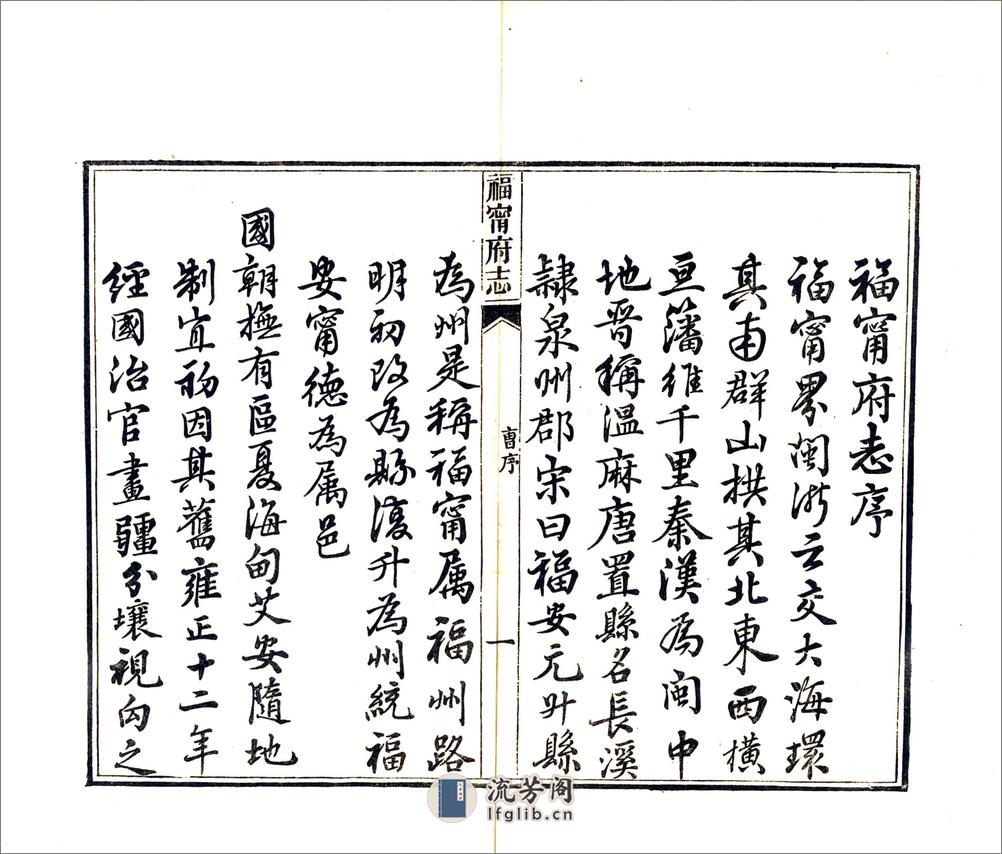 福甯府志序
福甯界閩浙之交大海環
其南群山拱其北東西橫
亘藩維千里秦漢為閩中
地晉稱溫麻唐置縣名長溪
隸泉州郡宋曰福安元升縣
福甯府志
曹序
一
為州是稱福甯属福州路
明初改為縣復升為州統福
安甯德為属邑
國朝撫有區夏海甸艾安隨地
制宜初因其舊雍正十二年
經國治官畫疆分壤視向之
流芳阁
lfglib.cn